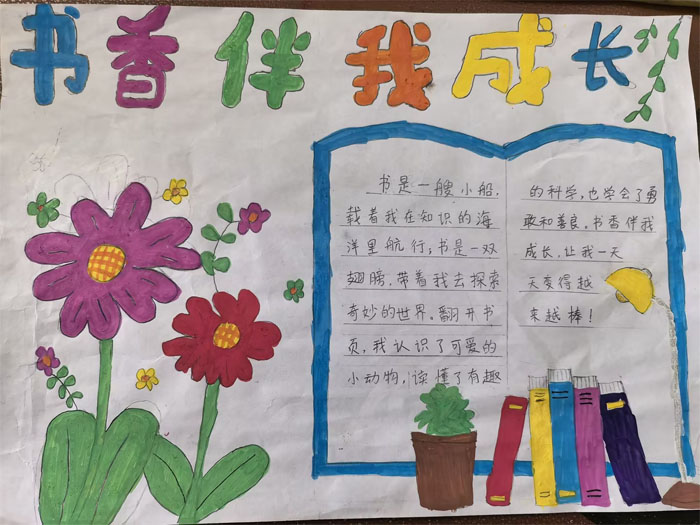 书香伴我成长
书是一艘小船，
载着我在知识的海
洋里航行；书是一双
翅膀，带着我去探索
奇妙的世界。翻开书
页，我认识了可爱的
小动物，读懂了有趣
的科学，也学会了勇
敢和善良。书香伴我
成长，让我一天
天变得越
来越棒！